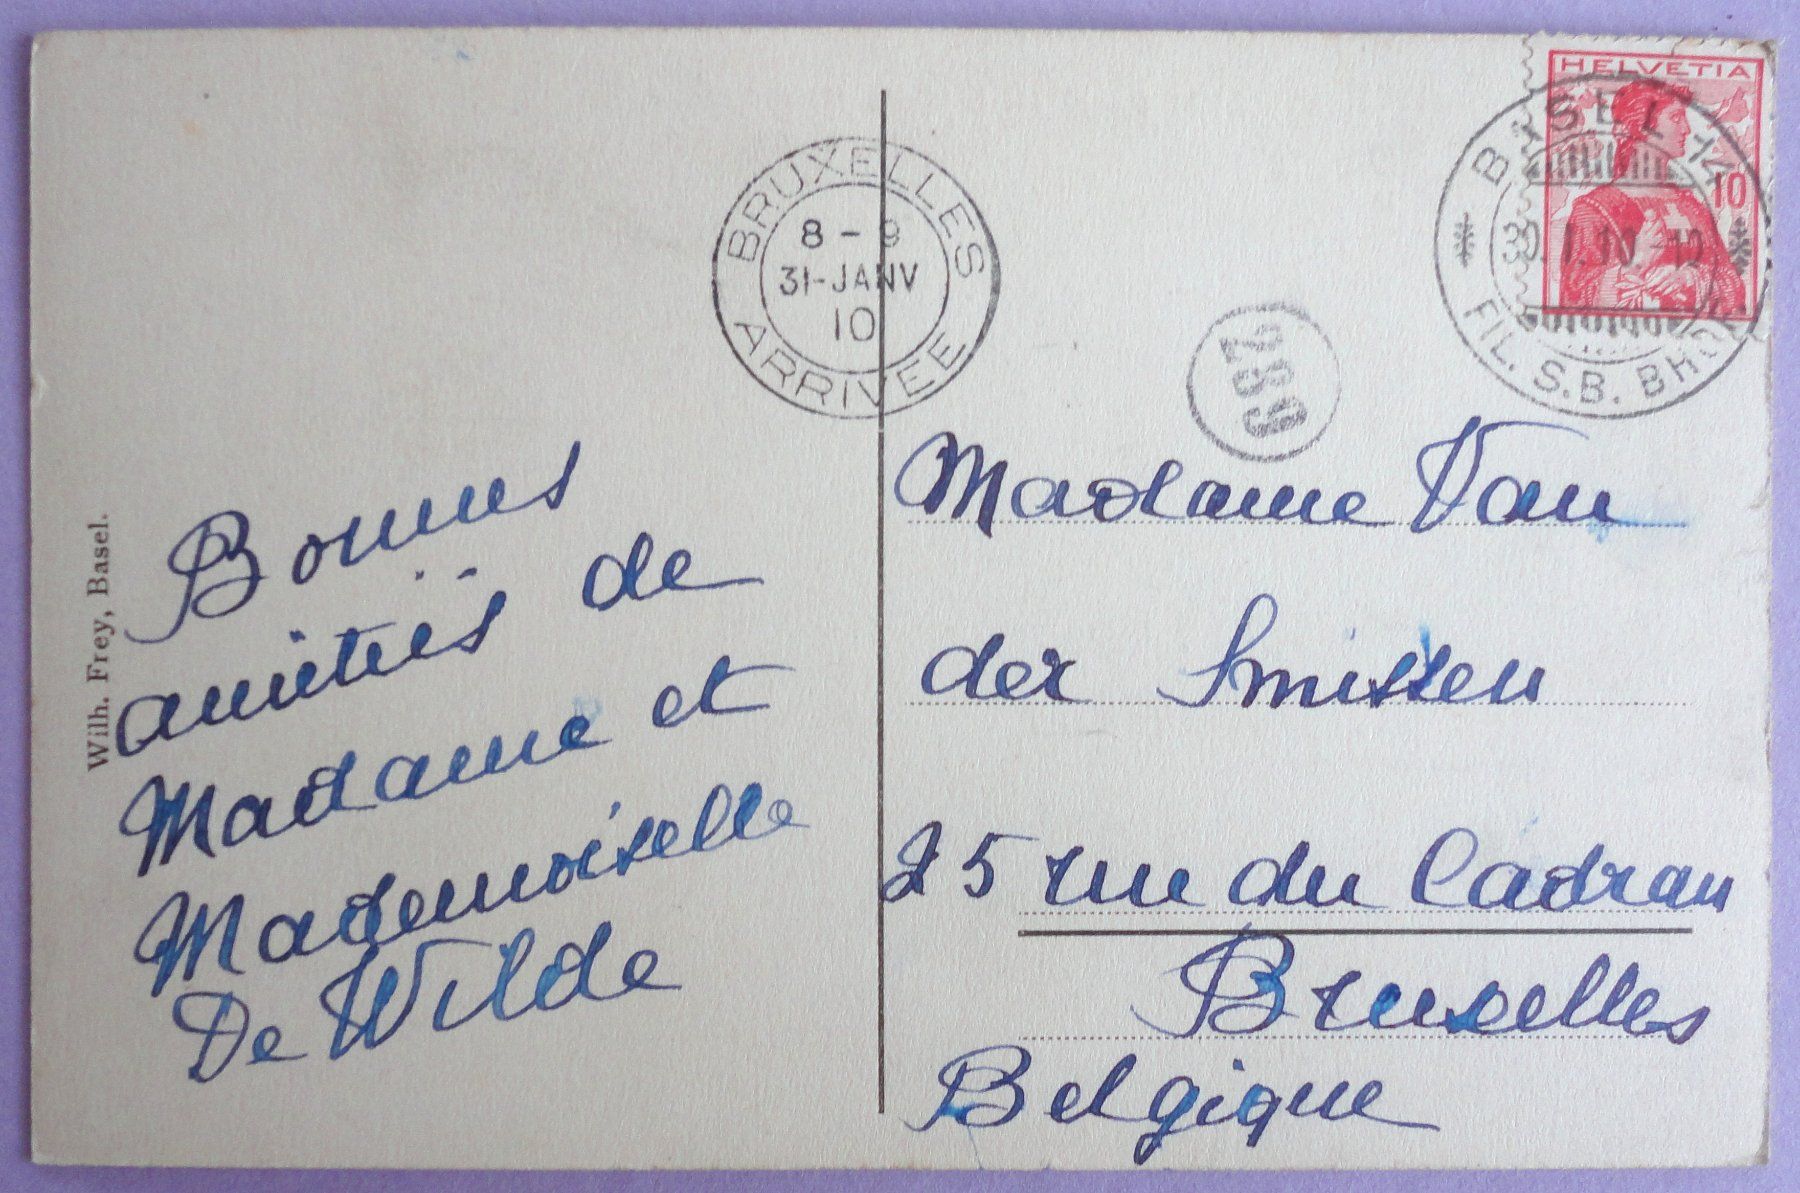 Wilh. Frey, Basel.
Bonnes
amitiés de
Madame et
Mademoiselle
De Wilde
BRUXELLES
8 - 9
31-JANV
10
ARRIVEE
HELVETIA
10
BASEL 14
30.I.10.-12
FIL. S.B. BHOF
Madame Van
der Smissen
25 rue du Cadran
Bruxelles
Belgique